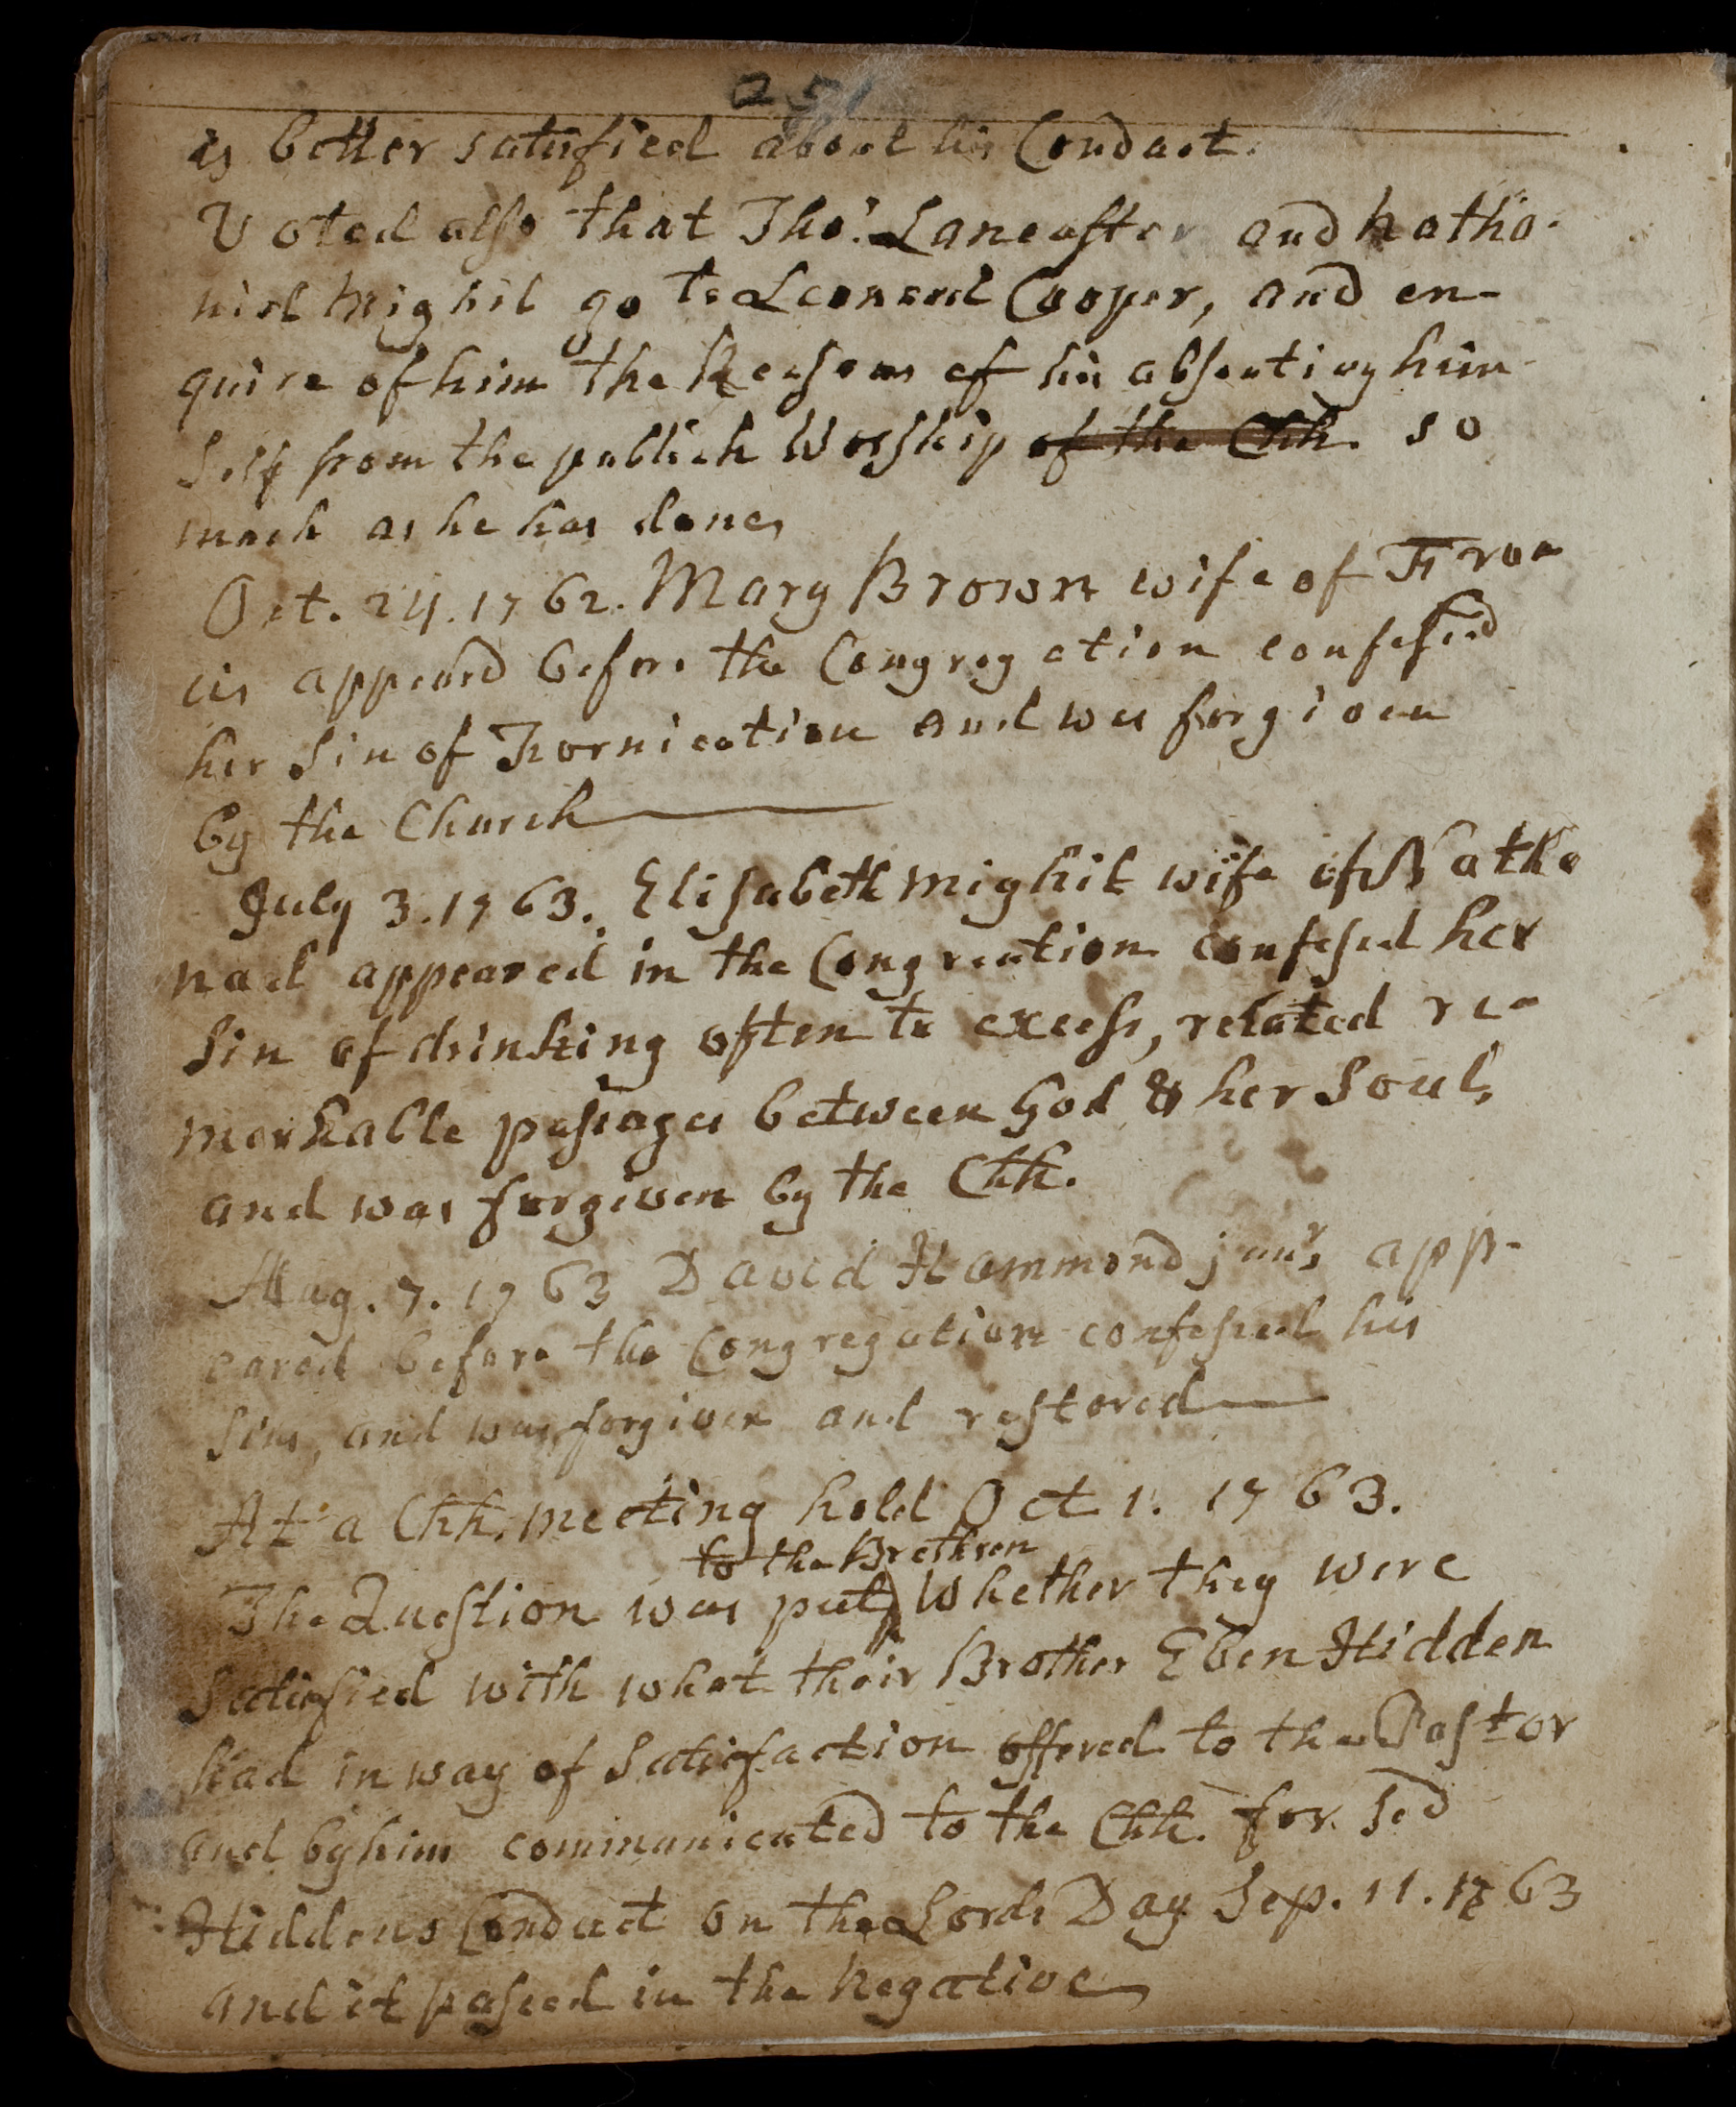 251
is better satisfied about his Conduct.
Voted also that Tho.s Lancaster and Natha-
niel Mighil go to Leonard Cooper, and en-
quire of him the Reasons of his absenting him-
self from the publick Worship of the Chh. so
much as he has done,
Oct. 24. 1762. Mary Brown wife of Fran
cis appeard before the Congregation confessed
her Sin of Fornication and was forgiven
by the Church
July 3. 1763. Elisabeth Mighil wife of Natha
nael appeared in the Congreation confesed her
Sin of drinking often to excess, related re-
markable passages between God & her Soul,
and was forgiven by the Chh.
Aug. 7. 1763 David Hammond junr, app-
eared before the Congregation confessed his
Sins, and was forgiven and restored
At a Chh. meeting held Oct 1. 1763.
to the Brethren
The Question was put, Whether they were
Satisfied with what their Brother Eben Hidden
had in way of Satisfaction offered to the Pastor
and by him communicated to the Chh. for sd
Hiddens Conduct on the Lords Day Sep. 11. 1763
and it passed in the Negative